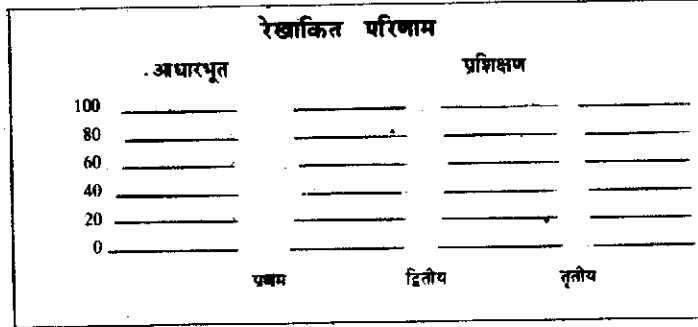 रेखाकित परिणाम
आधारभूत प्रशिक्षण
100
80
60
40
20
0
प्रथम द्वितीय तृतीय